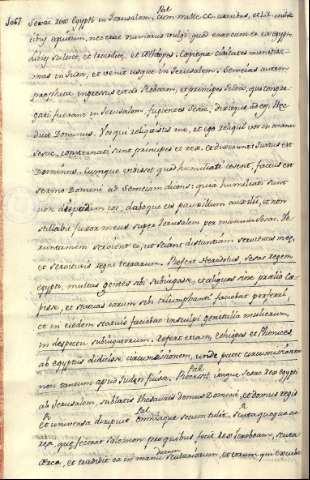 Sesac rex Egypti in Jerusalem, cum mille cc curribus, et LX milibus
equitum, nec erat numerus vulgi quod erat cum eo ex egypto
libys scilicet, et trocoditis, et ethiopes. Cepitque civitates munitissimas
in Juda, et venit usque in Jerusalem. Semeias autem
propheta ingressus est ad Roboam, et principes Juda, qui congregati
fuerant in Jerusalem, fugientes Sesac, dixitque ad eos. Hec
dicit Dominus. Vos reliquistis me, et ego reliqui vos in manu
Sesac, consternati sunt principes et rex, et dixerunt. Justus est
Dominus. Cumque vidisset quod humiliati essent, factus est
sermo Domini ad Semeiam dicens: quia humiliati sunt
non disperdam eos, daboque eis pauxillum auxilii, et non
stillabit furor meus super Jerusalem per manum Sesac. Verumtamen
servient ei, ut sciant distantiam servitutis mee,
et servitutis regni terrarum. Refert Herodotus, Sesac regem
egypti, multas gentes sibi subiugasse, et aliquas sine prelio cepisse,
et statuas earum sibi triumphanti faciebat preferri,
et in eisdem statuis faciebat insculpi genitalia mulierum,
in despectu subiugatorum. Refert etiam, ethiopes et Phenices
ab egyptiis didicisse circumcisionem, unde patet circumcisionem
non tantum apud Judeos fuisse. Recessit itaque Sesac rex egypti
ab Jerusalem, sublatis thesauris domus Domini, et domus regis
et universa diripuit omniaque secum tulit, scuta queque aurea,
que fecerat Salomon pro quibus fecit rex Roboam, scuta
erea, et tradidit ea in manu scutariorum, et eorum, qui excubabant